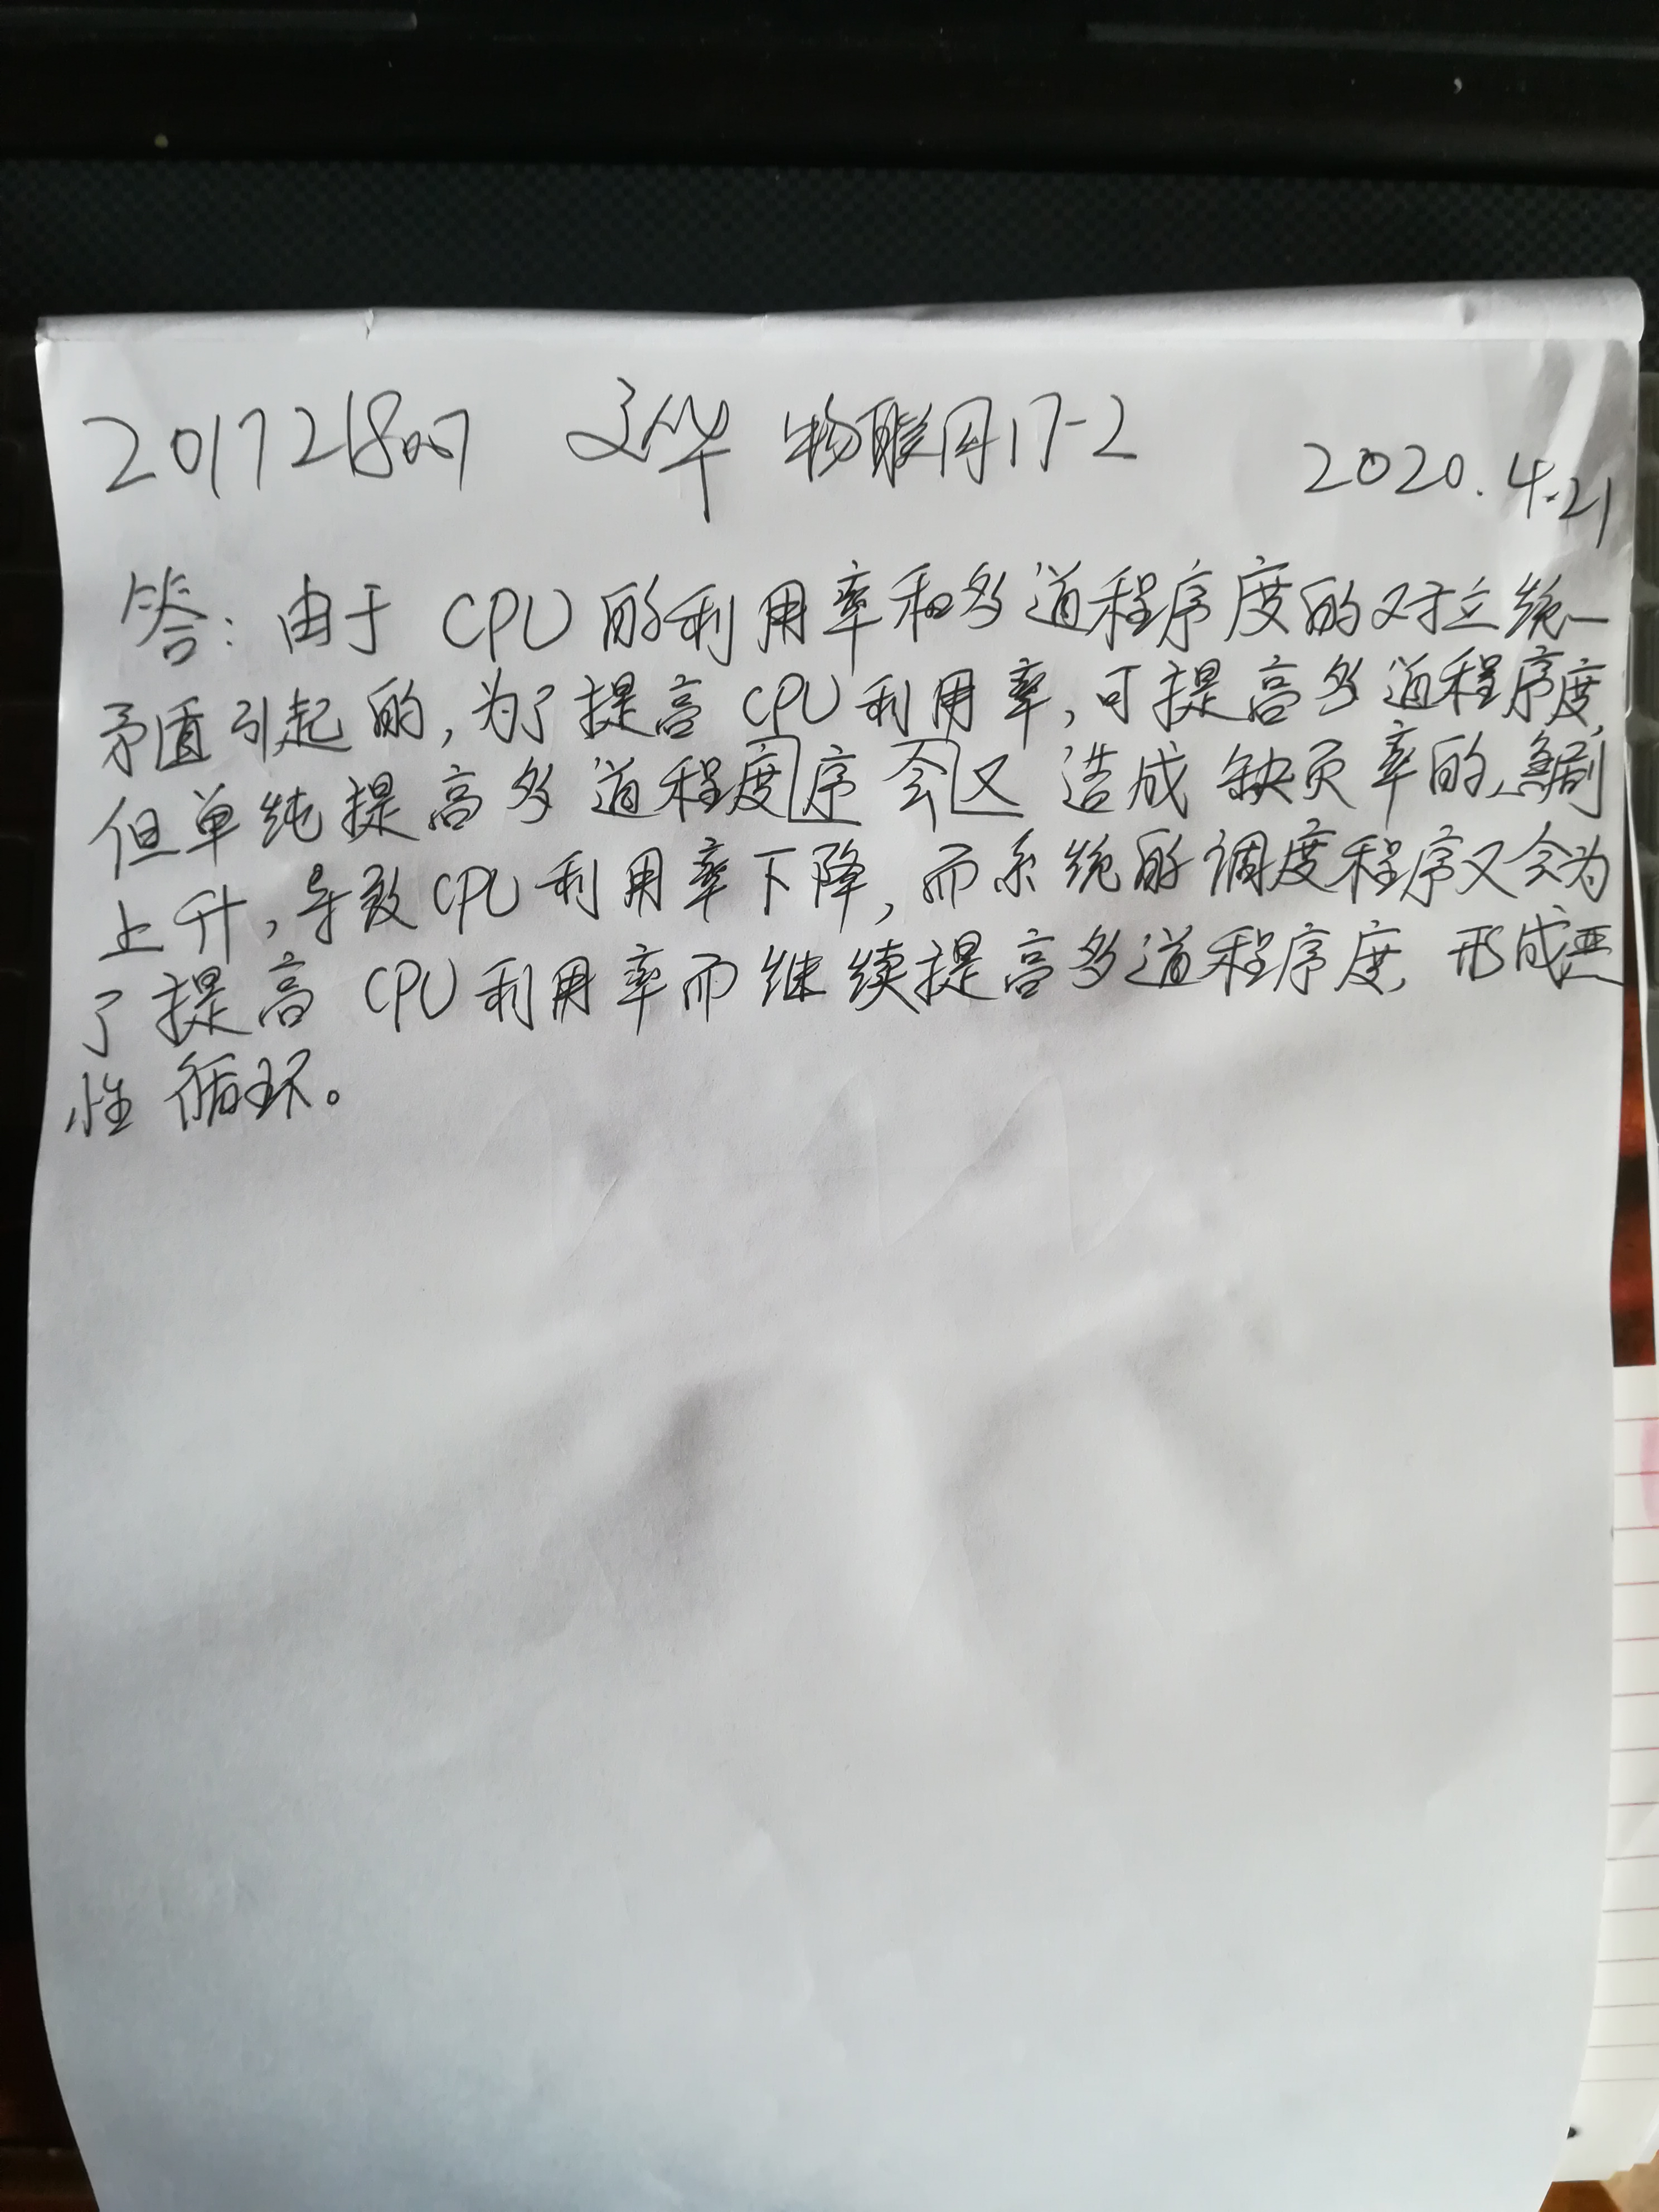 201721807 文华 物联网17-2 2020.4.21
答:由于CPU的利用率和多道程序度的对立统一
矛盾引起的,为了提高CPU利用率,可提高多道程序度,
但单纯提高多道程度序会又造成缺页率的急剧
上升,导致CPU利用率下降,而系统的调度程序又会为
了提高CPU利用率而继续提高多道程序度,形成恶
性循环。